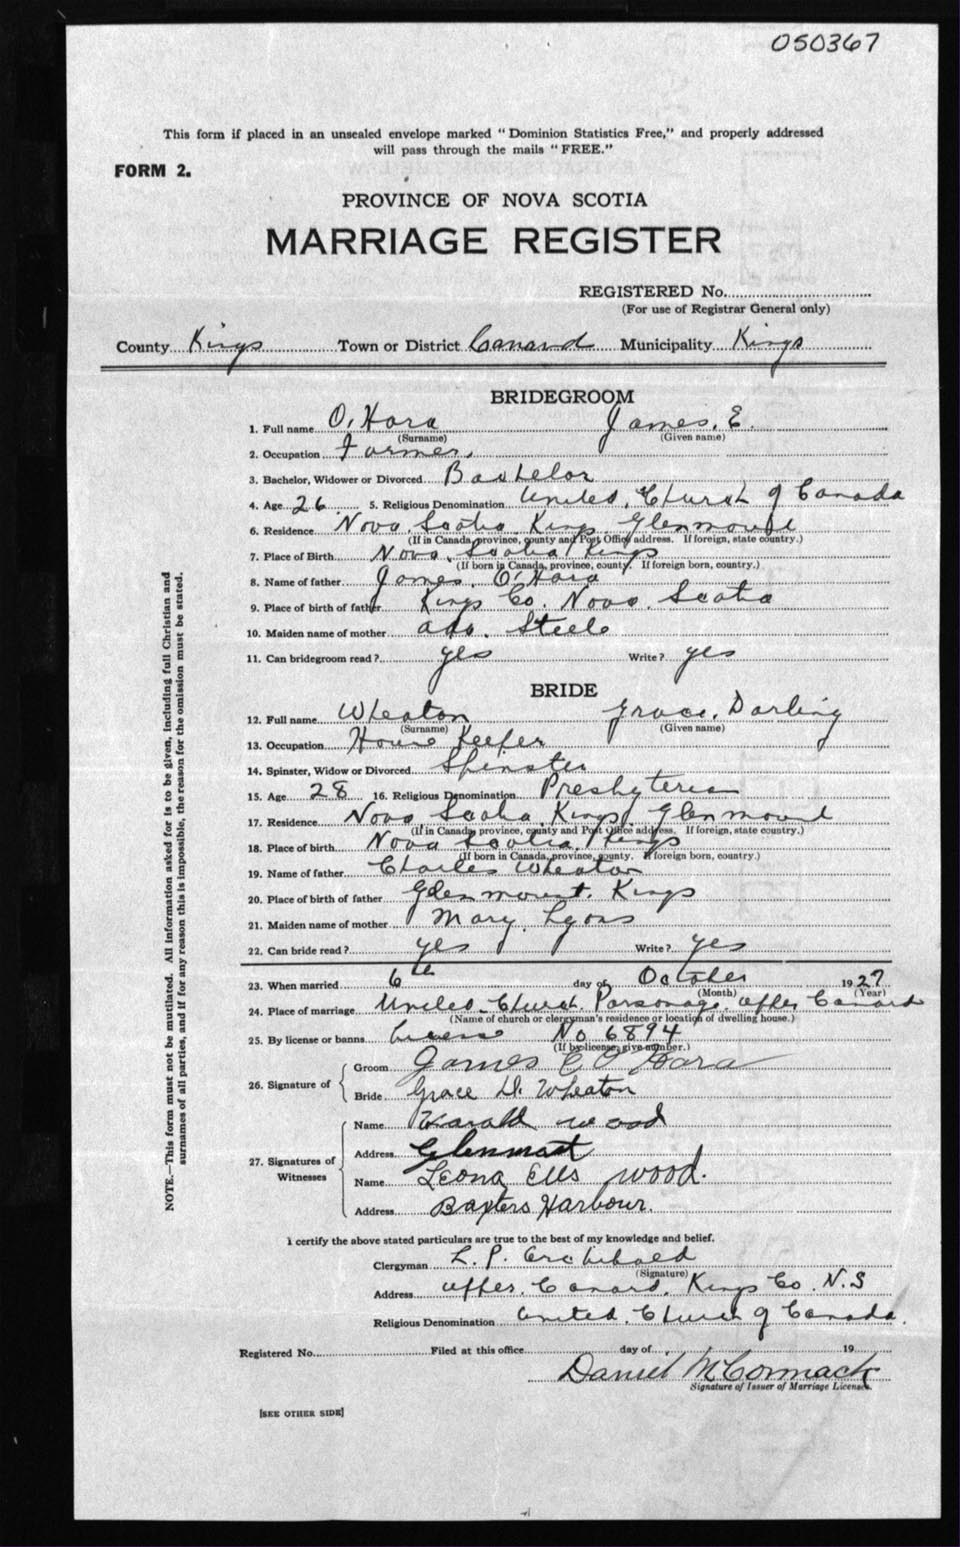 050367
This form if placed in an unsealed envelope marked "Dominion Statistics Free," and properly addressed
will pass through the mails "FREE."
FORM 2.
PROVINCE OF NOVA SCOTIA
MARRIAGE REGISTER
REGISTERED No.
(For use of Registrar General only)
County Kings Town or District Canard Municipality Kings
BRIDEGROOM
1. Full name O'Hara James. E.
(Surname) (Given name)
2. Occupation Farmer.
3. Bachelor, Widower or Divorced Bachelor
4. Age 26 5. Religious Denomination United. Church of Canada
6. Residence Nova. Scotia Kings Glenmount
(If in Canada, province, county and Post Office address. If foreign, state country.)
7. Place of Birth Nova. Scotia Kings
(If born in Canada, province, county. If foreign born, country.)
8. Name of father James. O'Hara
9. Place of birth of father Kings Co. Nova. Scotia
10. Maiden name of mother Ada. Steele
11. Can bridegroom read? yes Write? yes
BRIDE
12. Full name Wheaton Grace. Darling
(Surname) (Given name)
13. Occupation House Keeper
14. Spinster, Widow or Divorced Spinster
15. Age 28 16. Religious Denomination Presbyterian
17. Residence Nova Scotia. Kings Glenmount
(If in Canada, province, county and Post Office address. If foreign, state country.)
18. Place of birth Nova Scotia. Kings
(If born in Canada, province, county. If foreign born, country.)
19. Name of father Charles Wheaton
20. Place of birth of father Glenmount. Kings
21. Maiden name of mother Mary. Lyons
22. Can bride read? yes Write? yes
23. When married 6th day of October 1927
(Month) (Year)
24. Place of marriage United. Church. Parsonage. upper Canard
(Name of church or clergyman's residence or location of dwelling house.)
25. By license or banns license No 6894
(If by license, give number.)
26. Signature of Groom James E O'Hara
Bride Grace D. Wheaton
27. Signatures of Witnesses Name Harold Wood
Address Glenmont
Name Leona Ells Wood.
Address Baxters Harbour.
I certify the above stated particulars are true to the best of my knowledge and belief.
Clergyman L. P. Archibald
(Signature)
Address upper. Canard. Kings Co. N.S
Religious Denomination United. Church of Canada.
Registered No. Filed at this office day of 19
Daniel McCormack
Signature of Issuer of Marriage Licenses.
[SEE OTHER SIDE]
NOTE.—This form must not be mutilated. All information asked for is to be given, including full Christian and
surnames of all parties, and if for any reason this is impossible, the reason for the omission must be stated.